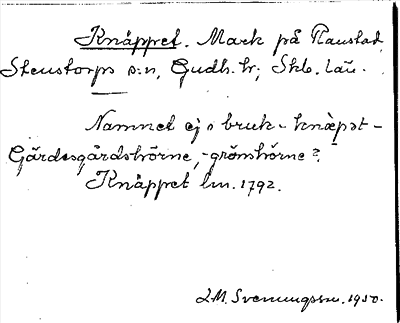 Knäppet. Mark på Raustad,
Stenstorps s:n, Gudh. hr; Skb. län.
Namnet ej i bruk - knæpst -
Gärdesgårdshörne, -grömhörne?
Knäppet lm. 1792.
L.M. Svenungsson. 1950.